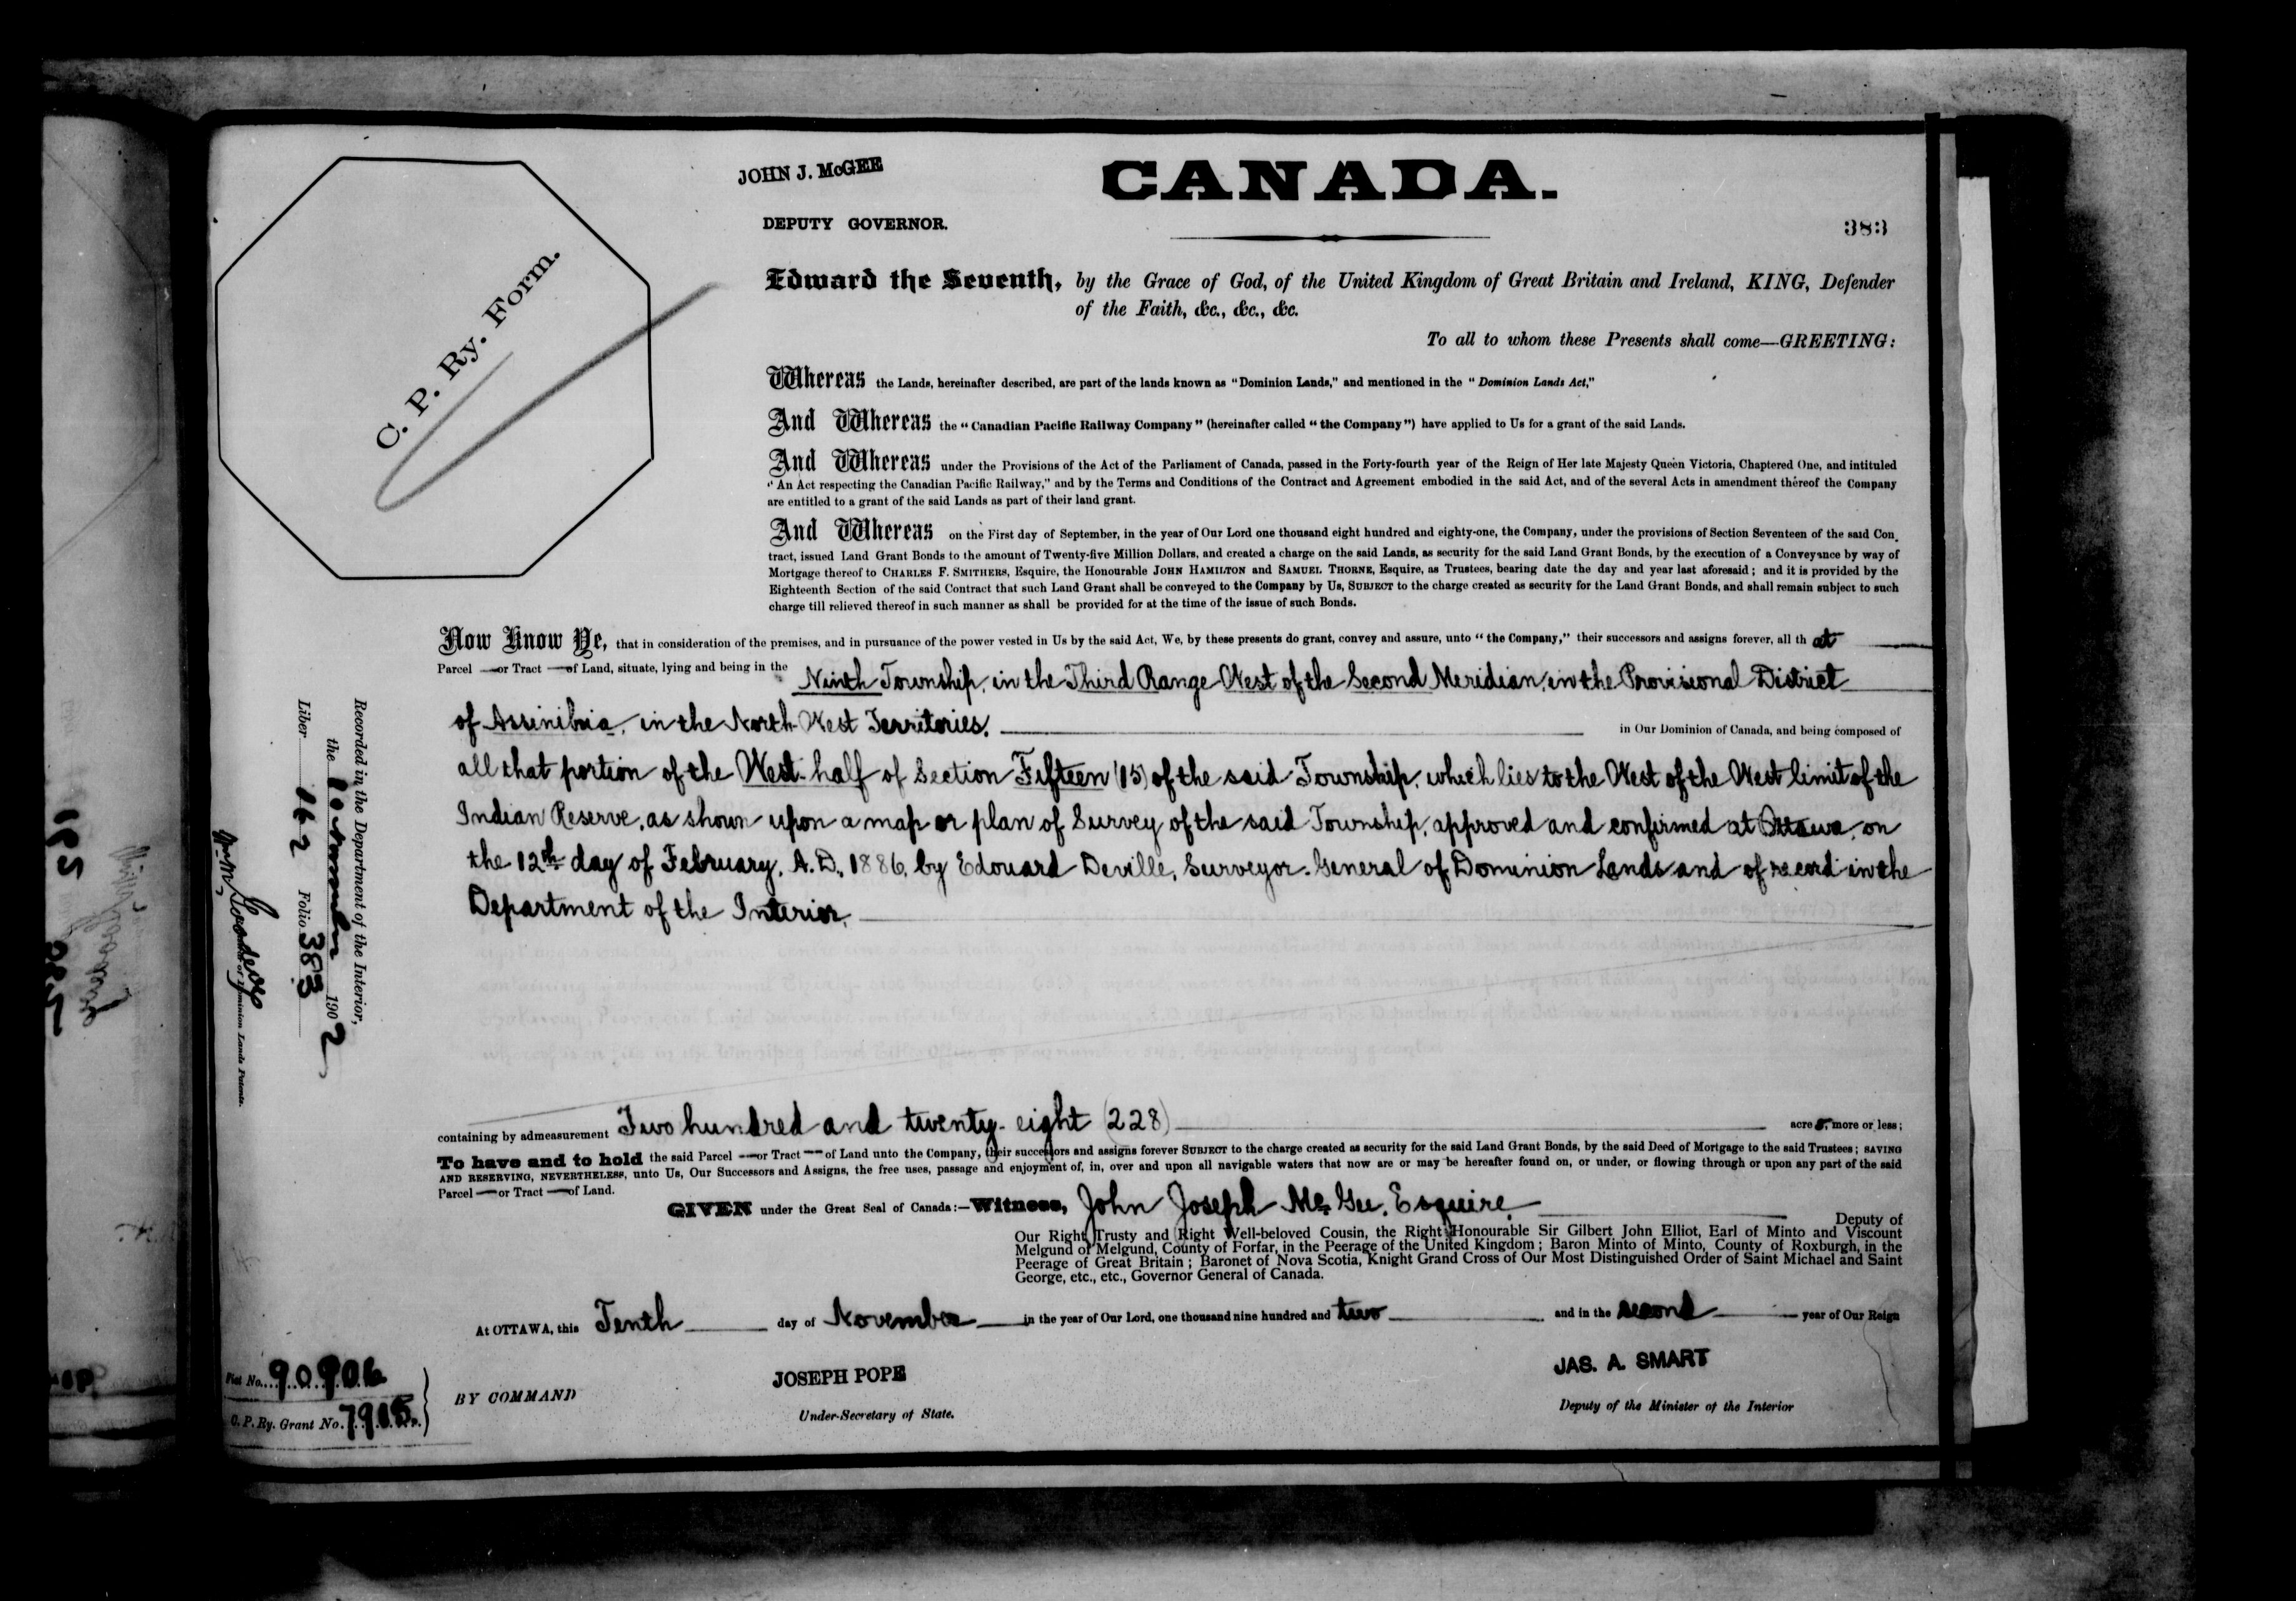 JOHN J. McGEE
CANADA.
DEPUTY GOVERNOR.
383
C. P. Ry. Form.
Edward the Seventh, by the Grace of God, of the United Kingdom of Great Britain and Ireland, KING, Defender
of the Faith, &c., &c., &c.
To all to whom these Presents shall come—GREETING:
Whereas the Lands, hereinafter described, are part of the lands known as "Dominion Lands," and mentioned in the "Dominion Lands Act,"
And Whereas the "Canadian Pacific Railway Company" (hereinafter called "the Company") have applied to Us for a grant of the said Lands.
And Whereas under the Provisions of the Act of the Parliament of Canada, passed in the Forty-fourth year of the Reign of Her late Majesty Queen Victoria, Chaptered One, and intituled
"An Act respecting the Canadian Pacific Railway," and by the Terms and Conditions of the Contract and Agreement embodied in the said Act, and of the several Acts in amendment thereof the Company
are entitled to a grant of the said Lands as part of their land grant.
And Whereas on the First day of September, in the year of Our Lord one thousand eight hundred and eighty-one, the Company, under the provisions of Section Seventeen of the said Con-
tract, issued Land Grant Bonds to the amount of Twenty-five Million Dollars, and created a charge on the said Lands, as security for the said Land Grant Bonds, by the execution of a Conveyance by way of
Mortgage thereof to CHARLES F. SMITHERS, Esquire, the Honourable JOHN HAMILTON and SAMUEL THORNE, Esquire, as Trustees, bearing date the day and year last aforesaid; and it is provided by the
Eighteenth Section of the said Contract that such Land Grant shall be conveyed to the Company by Us, SUBJECT to the charge created as security for the Land Grant Bonds, and shall remain subject to such
charge till relieved thereof in such manner as shall be provided for at the time of the issue of such Bonds.
Now Know Ye, that in consideration of the premises, and in pursuance of the power vested in Us by the said Act, We, by these presents do grant, convey and assure, unto "the Company," their successors and assigns forever, all th at
Parcel — or Tract — of Land, situate, lying and being in the Ninth Township, in the Third Range West of the Second Meridian, in the Provisional District
of Assiniboia, in the North West Territories, in Our Dominion of Canada, and being composed of
all that portion of the West half of Section Fifteen (15) of the said Township, which lies to the West of the West limit of the
Indian Reserve, as shown upon a map or plan of Survey of the said Township, approved and confirmed at Ottawa, on
the 12th day of February, A.D., 1886, by Edouard Deville, Surveyor-General of Dominion Lands and of record in the
Department of the Interior.
containing by admeasurement Two hundred and twenty-eight (228) acre s, more or less;
To have and to hold the said Parcel — or Tract — of Land unto the Company, their successors and assigns forever SUBJECT to the charge created as security for the said Land Grant Bonds, by the said Deed of Mortgage to the said Trustees; SAVING
AND RESERVING, NEVERTHELESS, unto Us, Our Successors and Assigns, the free uses, passage and enjoyment of, in, over and upon all navigable waters that now are or may be hereafter found on, or under, or flowing through or upon any part of the said
Parcel — or Tract — of Land.
GIVEN under the Great Seal of Canada:—Witness, John Joseph McGee, Esquire, Deputy of
Our Right Trusty and Right Well-beloved Cousin, the Right Honourable Sir Gilbert John Elliot, Earl of Minto and Viscount
Melgund of Melgund, County of Forfar, in the Peerage of the United Kingdom; Baron Minto of Minto, County of Roxburgh, in the
Peerage of Great Britain; Baronet of Nova Scotia, Knight Grand Cross of Our Most Distinguished Order of Saint Michael and Saint
George, etc., etc., Governor General of Canada.
At OTTAWA, this Tenth day of November in the year of Our Lord, one thousand nine hundred and two and in the second year of Our Reign
BY COMMAND
JOSEPH POPE
Under-Secretary of State.
JAS. A. SMART
Deputy of the Minister of the Interior
Fiat No. 90906
C. P. Ry. Grant No. 7915
Recorded in the Department of the Interior,
the 1902
Liber 162 Folio 383
of Dominion Lands Patents.